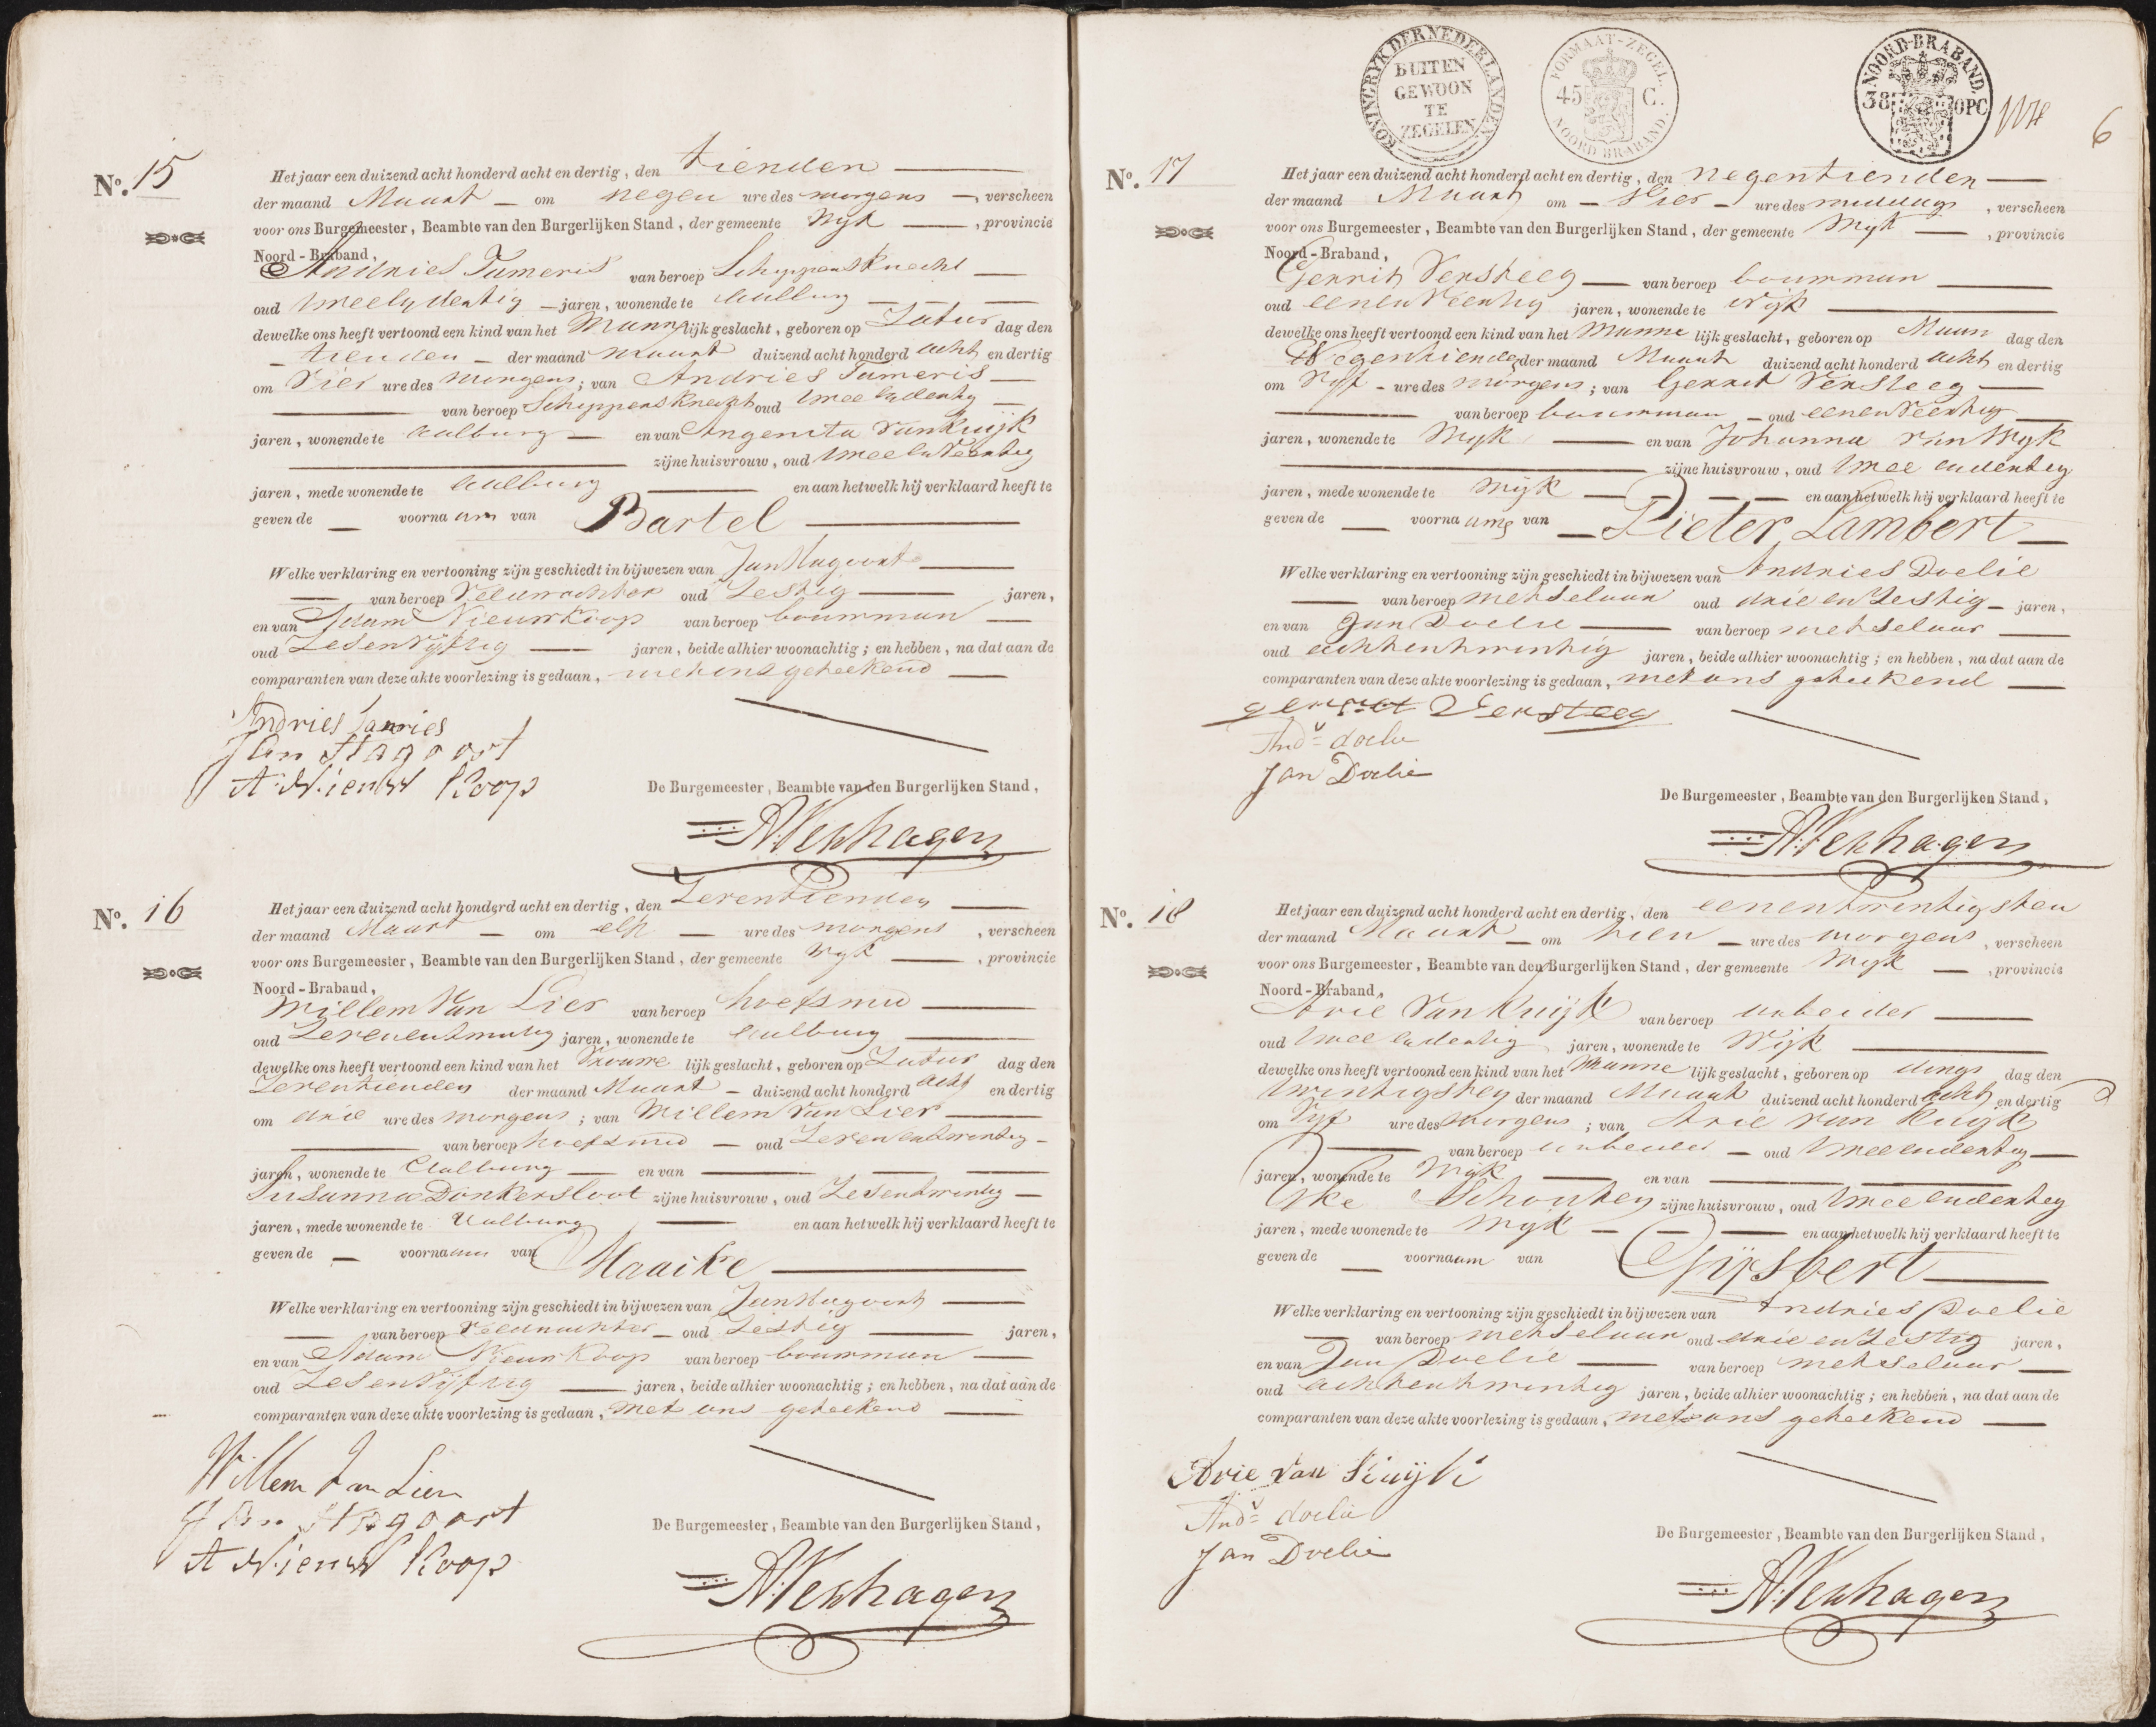 No. 15
Het jaar een duizend acht honderd acht en dertig, den tienden
der maand Maart om negen ure des morgens, verscheen
voor ons Burgemeester, Beambte van den Burgerlijken Stand, der gemeente Wyk, provincie
Noord-Braband,
Andries Tameris van beroep Schippersknecht
oud tweeendertig jaren, wonende te Aalburg
dewelke ons heeft vertoond een kind van het Mannelijk geslacht, geboren op Zatur dag den
tienden der maand maart duizend acht honderd acht en dertig
om Vier ure des morgens; van Andries Tameris
van beroep Schippersknecht oud twee endertig
jaren, wonende te Aalburg en van Angenita van Kuijk
zijne huisvrouw, oud twee en Veertig
jaren, mede wonende te Aalburg en aan hetwelk hij verklaard heeft te
geven de voornaam van Bartel
Welke verklaring en vertooning zijn geschiedt in bijwezen van Jan Hagoort
van beroep Veldwachter oud Zestig jaren,
en van Adam Nieuwkoop van beroep bouwman
oud Zesenvijftig jaren, beide alhier woonachtig; en hebben, na dat aan de
comparanten van deze akte voorlezing is gedaan, met ons geteekend
Andries Tamries
Jan Hagoort
A. Nieuw Koop
De Burgemeester, Beambte van den Burgerlijken Stand,
A. Verhagen
No. 16
Het jaar een duizend acht honderd acht en dertig, den Zeventienden
der maand Maart om elf ure des morgens, verscheen
voor ons Burgemeester, Beambte van den Burgerlijken Stand, der gemeente Wyk, provincie
Noord-Braband,
Willem Van Lier van beroep hoefsmid
oud Zevenentwintig jaren, wonende te Aalburg
dewelke ons heeft vertoond een kind van het Vrouwelijk geslacht, geboren op Zatur dag den
Zeventienden der maand Maart duizend acht honderd acht en dertig
om drie ure des morgens; van Willem Van Lier
van beroep hoefsmid oud Zevenentwintig
jaren, wonende te Aalburg en van
Susanna Donkersloot zijne huisvrouw, oud Zesentwintig
jaren, mede wonende te Aalburg en aan hetwelk hij verklaard heeft te
geven de voornaam van Maaike
Welke verklaring en vertooning zijn geschiedt in bijwezen van Jan Hagoort
van beroep Veldwachter oud Zestig jaren,
en van Adam Nieuwkoop van beroep bouwman
oud Zesenvijftig jaren, beide alhier woonachtig; en hebben, na dat aan de
comparanten van deze akte voorlezing is gedaan, met ons geteekend
Willem Van Lier
Jan Hagoort
A Nieuw Koop
De Burgemeester, Beambte van den Burgerlijken Stand,
A. Verhagen
KONINGRYK DER NEDERLANDEN
BUITEN
GEWOON
TE
ZEGELEN
FORMAAT-ZEGEL.
45 C.
NOORD BRABAND.
NOORD-BRABAND,
38 OPC
6
No. 17
Het jaar een duizend acht honderd acht en dertig, den negentienden
der maand Maart om Vier ure des middags, verscheen
voor ons Burgemeester, Beambte van den Burgerlijken Stand, der gemeente Wyk, provincie
Noord-Braband,
Gerrit Versteeg van beroep bouwman
oud eenenveertig jaren, wonende te Wijk
dewelke ons heeft vertoond een kind van het Manne lijk geslacht, geboren op Maan dag den
Negentienden der maand Maart duizend acht honderd acht en dertig
om Vyf ure des morgens; van Gerrit Versteeg
van beroep bouwman oud eenenveertig
jaren, wonende te Wyk en van Johanna van Wyk
zijne huisvrouw, oud twee endertig
jaren, mede wonende te Wijk en aan hetwelk hij verklaard heeft te
geven de voornaame van Pieter Lambert
Welke verklaring en vertooning zijn geschiedt in bijwezen van Andries Doelie
van beroep metselaar oud drie en Zestig jaren,
en van Jan Doelie van beroep metselaar
oud achtentwintig jaren, beide alhier woonachtig; en hebben, na dat aan de
comparanten van deze akte voorlezing is gedaan, met ons geteekend
gerret Versteeg
Ands doelie
Jan Doelie
De Burgemeester, Beambte van den Burgerlijken Stand,
A. Verhagen
No. 18
Het jaar een duizend acht honderd acht en dertig, den eenentwintigsten
der maand Maart om tien ure des morgens, verscheen
voor ons Burgemeester, Beambte van den Burgerlijken Stand, der gemeente Wyk, provincie
Noord-Braband,
Arie Van Kuijk van beroep arbeider
oud twee endertig jaren, wonende te Wijk
dewelke ons heeft vertoond een kind van het Manne lijk geslacht, geboren op dings dag den
twintigsten der maand Maart duizend acht honderd acht en dertig
om Vyf ure des morgens; van Arie van Kuijk
van beroep arbeider oud tweeendertig
jaren, wonende te Wijk en van
Yke Schouten zijne huisvrouw, oud twee endertig
jaren, mede wonende te Wijk en aan hetwelk hij verklaard heeft te
geven de voornaam van Gijsbert
Welke verklaring en vertooning zijn geschiedt in bijwezen van Andries Doelie
van beroep metselaar oud drie en Zestig jaren,
en van Jan Doelie van beroep metselaar
oud achtentwintig jaren, beide alhier woonachtig; en hebben, na dat aan de
comparanten van deze akte voorlezing is gedaan, met ons geteekend
Arie van Kuijk
Ands doelie
Jan Doelie
De Burgemeester, Beambte van den Burgerlijken Stand,
A. Verhagen